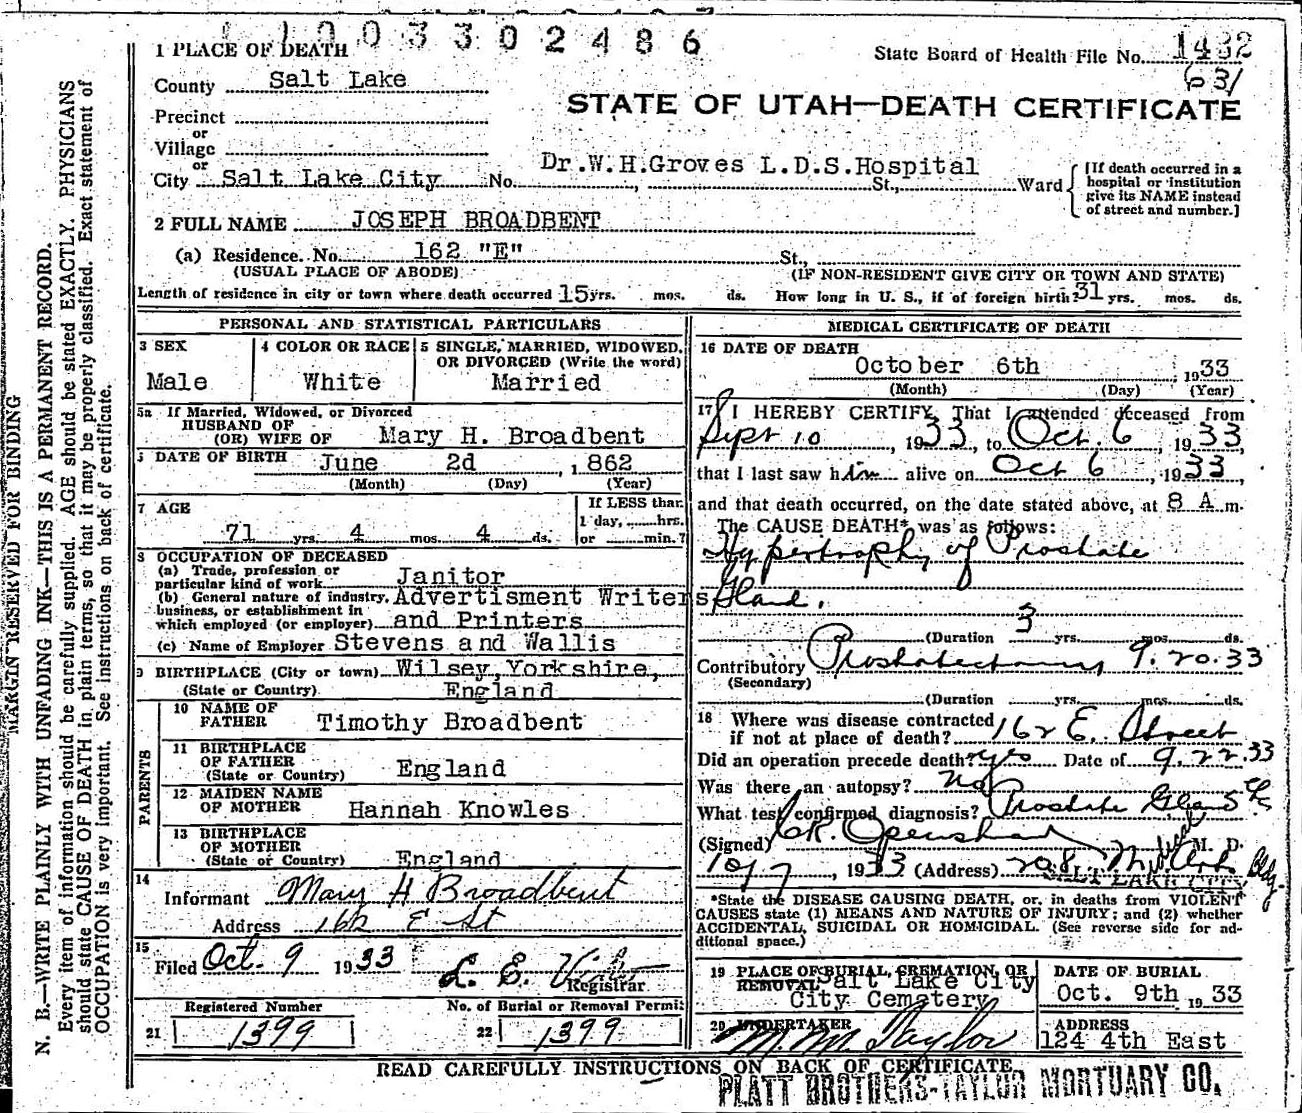 1 1003302486
1 PLACE OF DEATH
State Board of Health File No. 1432
631
County Salt Lake
STATE OF UTAH—DEATH CERTIFICATE
Precinct
or
Village
or
City Salt Lake City No. Dr. W.H.Groves L.D.S.Hospital St., Ward
[If death occurred in a hospital or institution give its NAME instead of street and number.]
2 FULL NAME JOSEPH BROADBENT
(a) Residence. No. 162 "E" St.,
(USUAL PLACE OF ABODE) (IF NON-RESIDENT GIVE CITY OR TOWN AND STATE)
Length of residence in city or town where death occurred 15 yrs. mos. ds. How long in U. S., if of foreign birth? 31 yrs. mos. ds.
PERSONAL AND STATISTICAL PARTICULARS
3 SEX Male
4 COLOR OR RACE White
5 SINGLE, MARRIED, WIDOWED, OR DIVORCED (Write the word) Married
5a If Married, Widowed, or Divorced
HUSBAND OF
(OR) WIFE OF Mary H. Broadbent
DATE OF BIRTH June 2d , 1862
(Month) (Day) (Year)
7 AGE
71 yrs. 4 mos. 4 ds.
If LESS than
1 day, hrs.
or min.?
8 OCCUPATION OF DECEASED
(a) Trade, profession or
particular kind of work Janitor
(b) General nature of industry, Advertisment Writers
business, or establishment in
which employed (or employer) and Printers
(c) Name of Employer Stevens and Wallis
9 BIRTHPLACE (City or town) Wilsey, Yorkshire,
(State or Country) England
PARENTS
10 NAME OF
FATHER Timothy Broadbent
11 BIRTHPLACE
OF FATHER
(State or Country) England
12 MAIDEN NAME
OF MOTHER Hannah Knowles
13 BIRTHPLACE
OF MOTHER
(State or Country) England
14
Informant Mary H Broadbent
Address 162 E St
15
Filed Oct. 9 1933 L. E.
Registrar
Registered Number
21 1399
No. of Burial or Removal Permit
22 1399
MEDICAL CERTIFICATE OF DEATH
16 DATE OF DEATH
October 6th , 1933
(Month) (Day) (Year)
17 I HEREBY CERTIFY, That I attended deceased from
Sept 10, 1933, to Oct. 6, 1933,
that I last saw him alive on Oct 6, 1933,
and that death occurred, on the date stated above, at 8 A.m.
The CAUSE DEATH* was as follows:
Hypertrophy of Prostate
Gland.
(Duration 3 yrs. mos. ds.
Contributory Prostatectomy 9.20.33
(Secondary)
(Duration yrs. mos. ds.
18 Where was disease contracted
if not at place of death? 162 E. Street
Did an operation precede death? yes Date of 9.22.33
Was there an autopsy? No
What test confirmed diagnosis? Prostate Gland
(Signed) C.R. Openshaw M. D.
10/7, 1933 (Address) 708 Bldg.
SALT LAKE CITY
*State the DISEASE CAUSING DEATH, or, in deaths from VIOLENT
CAUSES state (1) MEANS AND NATURE OF INJURY; and (2) whether
ACCIDENTAL, SUICIDAL OR HOMICIDAL. (See reverse side for ad-
ditional space.)
19 PLACE OF BURIAL, CREMATION, OR
REMOVAL Salt Lake City
City Cemetery
DATE OF BURIAL
Oct. 9th 1933
20 UNDERTAKER
M. M. Taylor
ADDRESS
124 4th East
READ CAREFULLY INSTRUCTIONS ON BACK OF CERTIFICATE.
PLATT BROTHERS-TAYLOR MORTUARY CO.
MARGIN RESERVED FOR BINDING
N. B.—WRITE PLAINLY WITH UNFADING INK—THIS IS A PERMANENT RECORD.
Every item of information should be carefully supplied. AGE should be stated EXACTLY. PHYSICIANS
should state CAUSE OF DEATH in plain terms, so that it may be properly classified. Exact statement of
OCCUPATION is very important. See instructions on back of certificate.